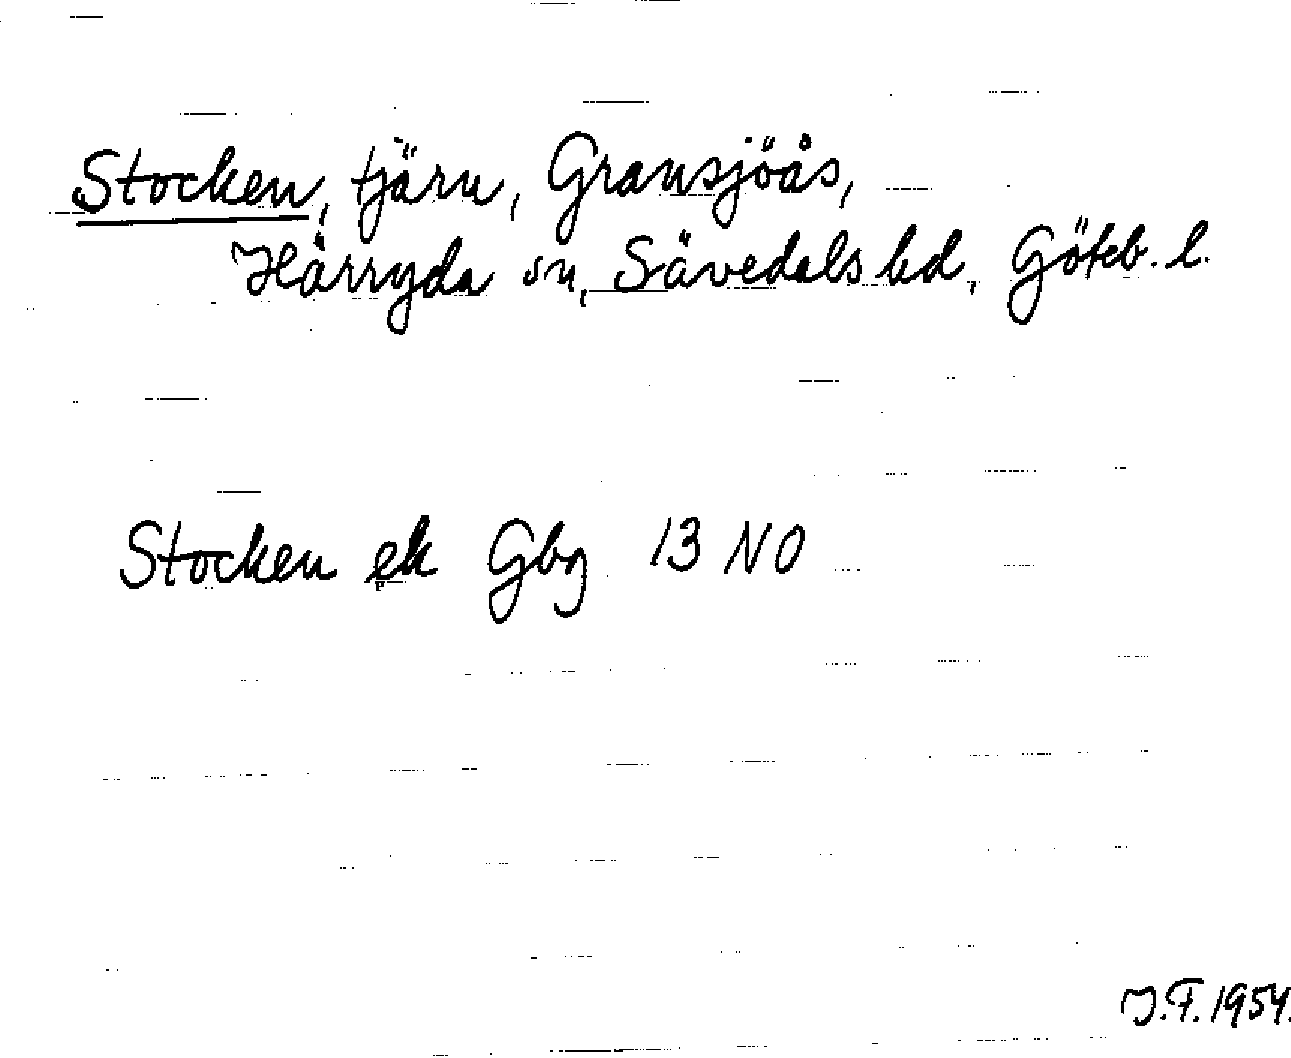 Stocken, tjärn, Gransjöås,
Härryda sn, Sävedals hd, Göteb. l.
Stocken ek Gbg 13 NO
J.F. 1954.